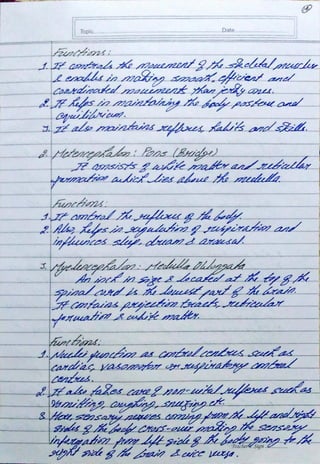 Topic Date
Functions:
1. It controls the movement of the skeletal muscles
& enables in making smooth, efficient and
coordinated movements than jerky ones.
2. It helps in maintaining the body posture and
equilibrium.
3. It also maintains reflexes, habits and skills.
2. Metencephalon: Pons (Bridge)
It consists of white matter and reticular
formation which lies above the medulla.
Functions:
1. It control the reflexes of the body.
2. Also, helps in regulation of respiration and
influences sleep, dream & arousal.
3. Myelencephalon: Medulla Oblongata
An inch in size & located at the top of the
spinal cord is the lowest part of the brain.
It contains projection tracts, reticular
formation & white matter.
Functions:
1. Nuclei function as control centres such as
cardiac, vasomotor or respiratory control
centres.
2. It also takes care of non-vital reflexes such as
vomitting, coughing, sneezing etc.
3. Here sensory nerves coming from the left and right
sides of the body cross-over making the sensory
Teacher's Sign
information from left side of the body going to the
right side of the brain & vice versa.